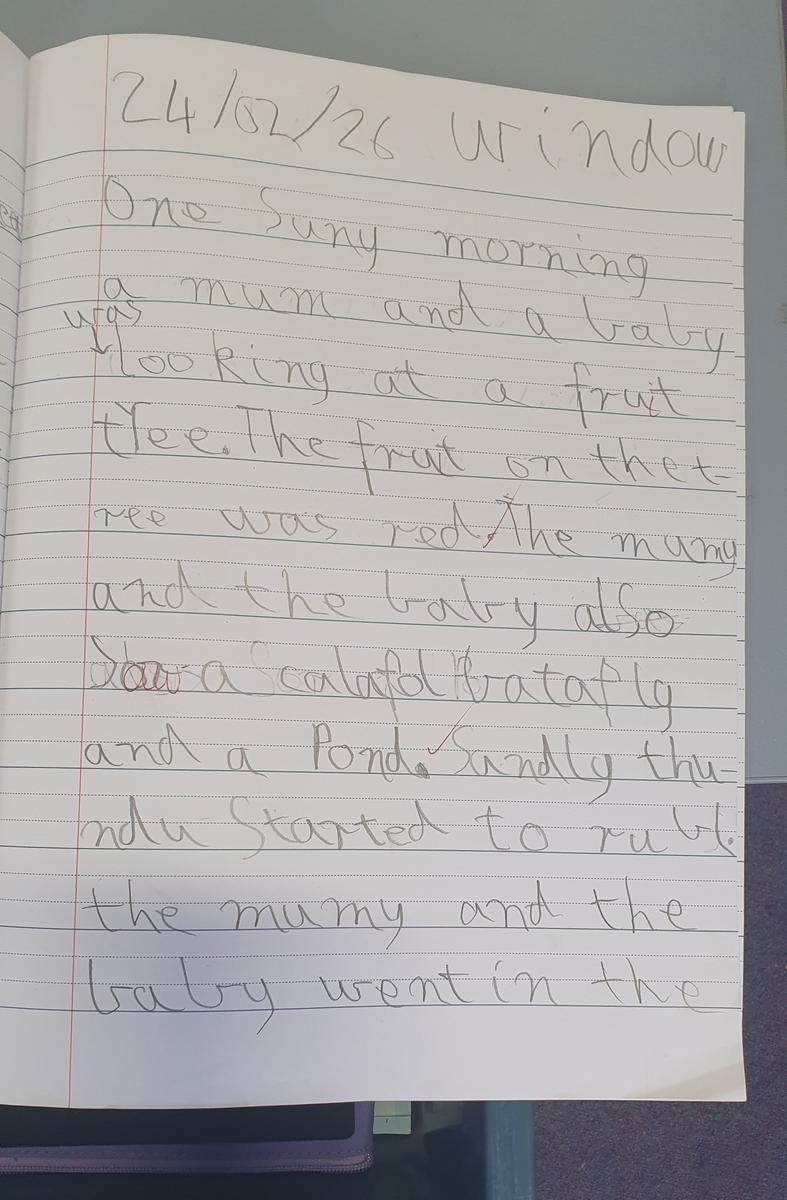 24/02/26 window
One Suny morning
a mum and a baby
was
looking at a fruit
tree. The fruit on the t-
ree was red. The mumy
and the baby also
Saw a Scalafol batafly
and a Pond. Sandly thu-
ndu Started to rubl.
the mumy and the
baby went in the